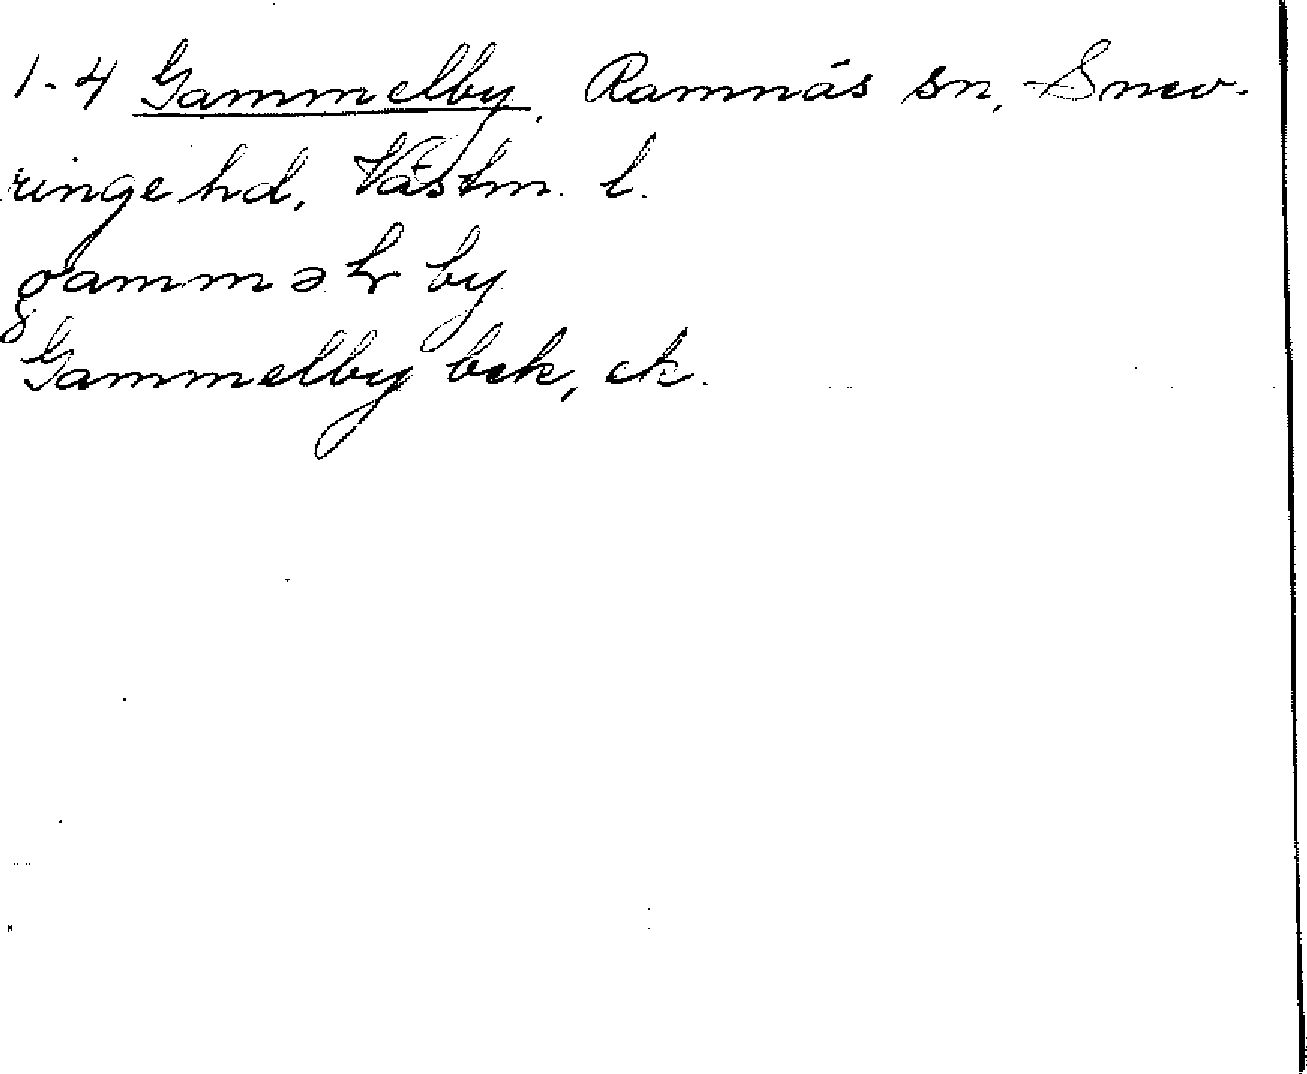 1-4 Gammelby, Ramnäs sn, Snev-
ringe hd, Västm. l.
gammәłby
Gammelby bek, ek.